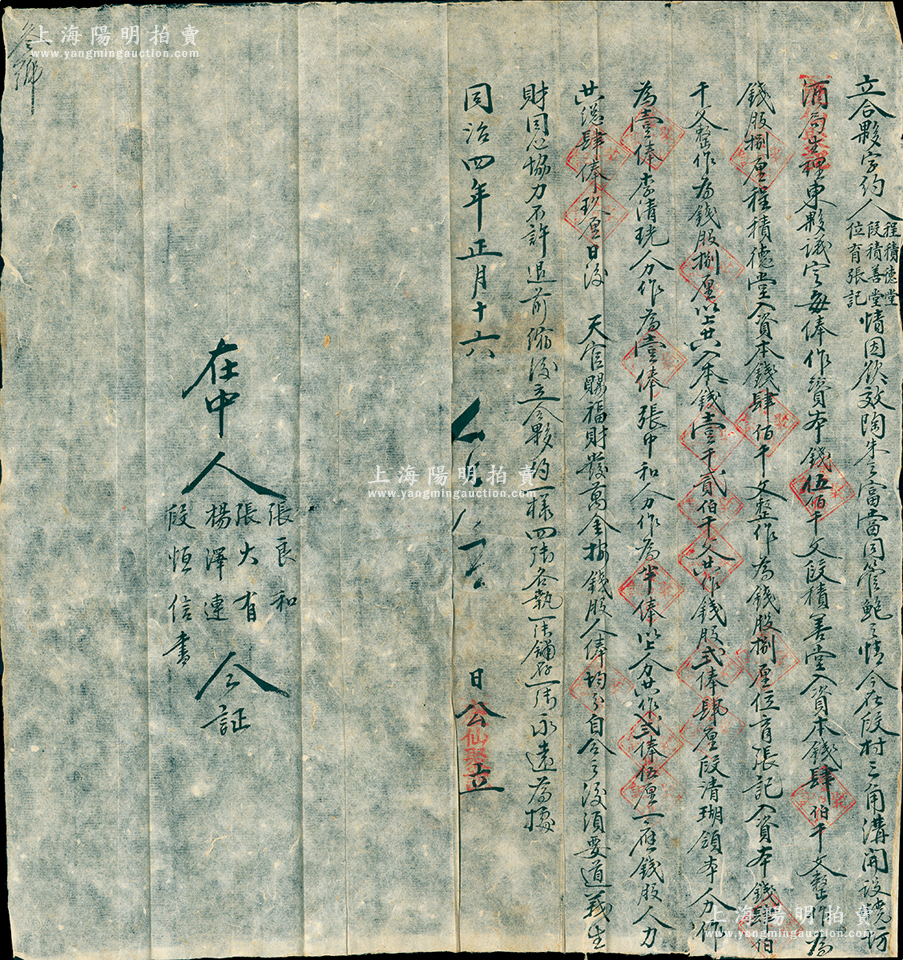 立合夥字約人程積德堂段積善堂位育張記情因欲效陶朱之富當同管鮑之情今在段村三角溝開設燒坊
酒局生理東夥議定每俸作資本錢伍佰千文段積善堂入資本錢肆佰千文整作為
錢股捌厘程積德堂入資本錢肆佰千文整作為錢股捌厘位育張記入資本錢肆佰
千文整作為錢股捌厘以上共入本錢壹千貳佰千文共作錢股弍俸肆厘段清瑚領本人力作
為壹俸李清珖人力作為壹俸張中和人力作為半俸以上人力共作弍俸伍厘一應錢股人力
共總肆俸玖厘日後 天官賜福財發萬金按錢股人俸均分自合之後須要道義生
財同心協力不許退前縮後立合夥約一樣四張各執一張鋪存一張永遠為據
同治四年正月十六 日公立
仙聚
在中人
張良和
張大有
楊澤連
段恒信書
仝証
叁號
上海陽明拍賣
www.yangmingauction.com
上海陽明拍賣
www.yangmingauction.com
上海陽明拍賣
www.yangmingauction.com